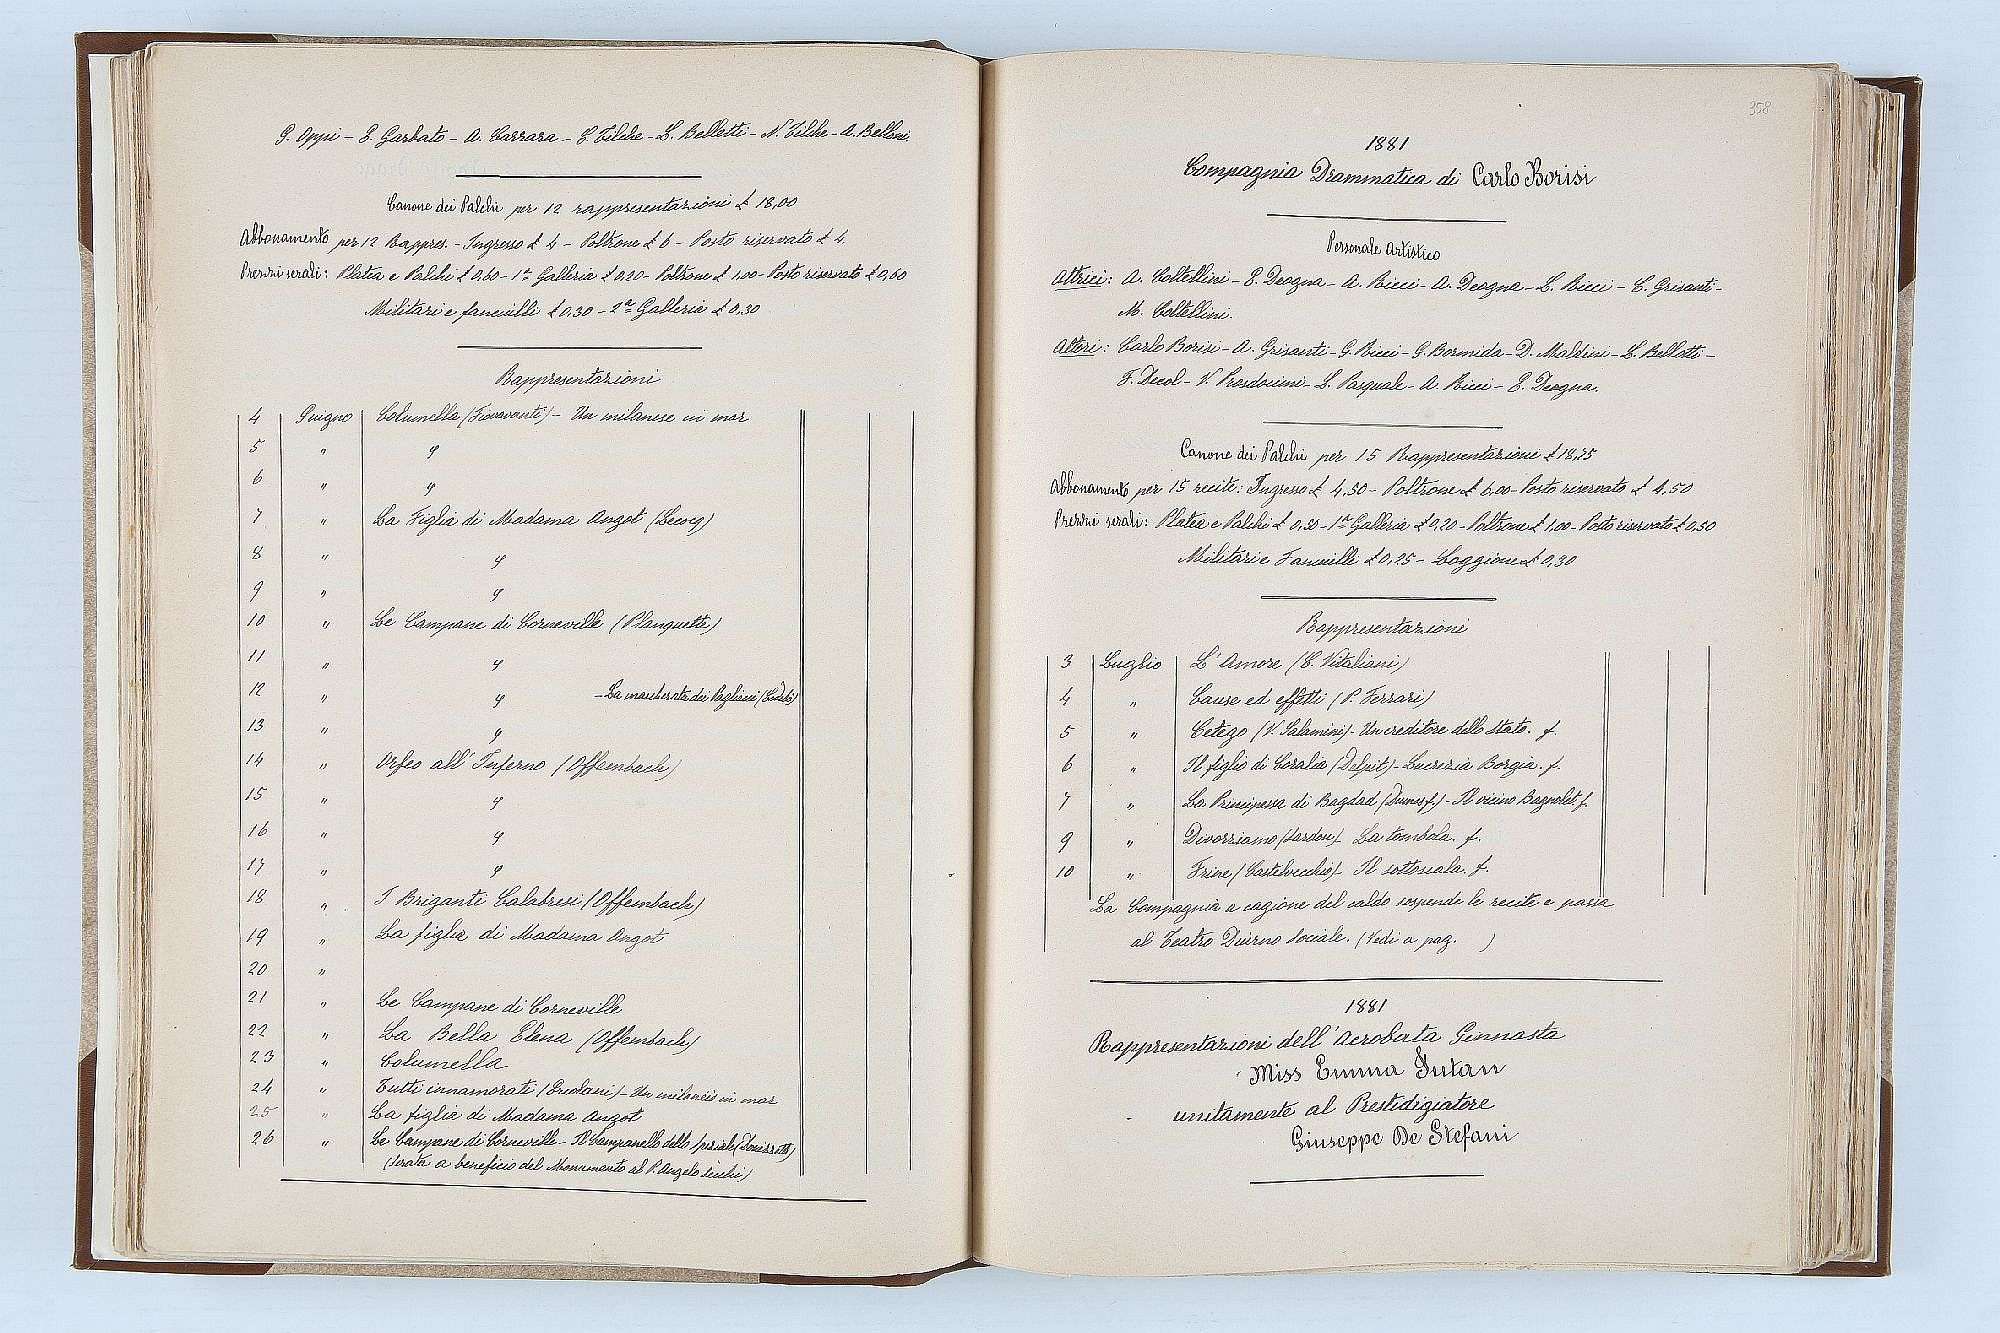 G. Oppi - E. Garbato - A. Carrara - E. Tilche - L. Belletti - N. Tilche - A. Bellini.
Canone dei Palchi per 12 rappresentazioni £ 18,00
Abbonamento per 12 Rappres. - Ingresso £ 4 - Poltrone £ 6 - Posto riservato £ 4.
Prezzi serali: Platea e Palchi £ 0,60 - 1ª Galleria £ 0,40 - Poltrone £ 1,00 - Posto riservato £ 0,60
Militari e fanciulli £ 0,30 - 2ª Galleria £ 0,30
Rappresentazioni
4 Giugno Columella (Fioravanti) - Un milanese in mar
5 " φ
6 " φ
7 " La Figlia di Madama Angot (Lecocq)
8 " φ
9 " φ
10 " Le Campane di Corneville (Planquette)
11 " φ
12 " φ - La mascherata dei Pagliacci
13 " φ
14 " Orfeo all'Inferno (Offembach)
15 " φ
16 " φ
17 " φ
18 " I Briganti Calabresi (Offembach)
19 " La figlia di Madama Angot
20 "
21 " Le Campane di Corneville
22 " La Bella Elena (Offembach)
23 " Columella
24 " Tutti innamorati - Un milaneis in mar
25 " La figlia di Madama Angot
26 " Le Campane di Corneville - Il Campanello dello speziale (Donizzetti)
(Serata a beneficio del Monumento al P. Angelo Secchi)
358
1881
Compagnia Drammatica di Carlo Borisi
Personale Artistico
Attrici: A. Coltellini - E. Deogna - A. Ricci - A. Deogna - L. Ricci - C. Grisanti -
M. Coltellini.
Attori: Carlo Borisi - A. Grisanti - G. Ricci - G. Bormida - D. Maldini - L. Bellotti -
F. Decol - V. Prosdocimi - L. Pasquale - A. Ricci - E. Deogna.
Canone dei Palchi per 15 Rappresentazione £ 18,75
Abbonamento per 15 recite: Ingresso £ 4,50 - Poltrone £ 6,00 - Posto riservato £ 4,50
Prezzi serali: Platea e Palchi £ 0,50 - 1ª Galleria £ 0,20 - Poltrone £ 1,00 - Posto riservato £ 0,50
Militari e Fanciulli £ 0,25 - Loggione £ 0,30
Rappresentazioni
3 Luglio L'Amore (C. Vitaliani)
4 " Cause ed effetti (P. Ferrari)
5 " Cetego (V. Salamini) - Un creditore dello Stato. f.
6 " Il figlio di Coralia (Delpit) - Lucrezia Borgia. f.
7 " La Principessa di Bagdad (Dumas f.) - Il vicino Bagnolet. f.
9 " Divorziamo (Sardou) - La tombola. f.
10 " Frine (Castelvecchio) - Il sottoscala. f.
La Compagnia a cagione del caldo sospende le recite e passa
al Teatro Diurno Sociale. (Vedi a pag. )
1881
Rappresentazioni dell'Acrobata Ginnasta
Miss Emma Jutau
unitamente al Prestidigiatore
Giuseppe De Stefani